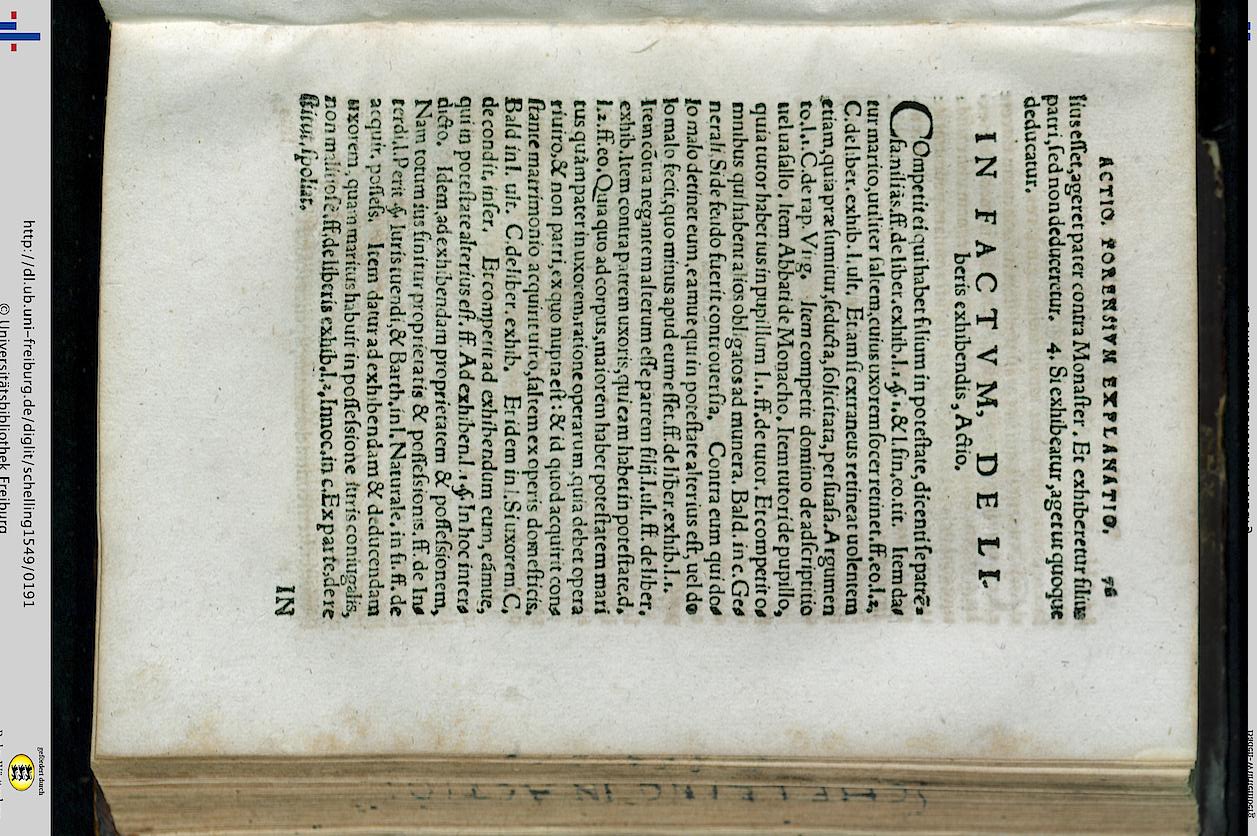 ACTIO. FORENSIVM EXPLANATIO. 76
lius esset, ageret pater contra Monaster. Et exhiberetur filius
patri, sed non deduceretur. 4. Si exhibeatur, agetur quoque
deducatur.
IN FACTVM, DE LI-
beris exhibendis, Actio.
COmpetit ei qui habet filium in potestate, dicenti se patrē-
familiâs. ff. de liber. exhib. l. 1. §. 1. & l. fin. eo. tit. Item da-
tur marito, utiliter saltem, cuius uxorem socer retinet. ff. eo. l. 2,
C. de liber. exhib. l. ult. Etiam si extraneus retineat uolentem
etiam, quia præsumitur, seducta, solicitata, persuasa. Argumen
to. l. 1. C. de rap. Virg. Item competit domino de adscriptitio
uel uasallo. Item Abbati de Monacho. Item tutori de pupillo,
quia tutor habet ius in pupillum l. 1. ff. de tutor. Et competit o-
mnibus qui habent alios obligatos ad munera. Bald. in c. Ge-
nerali. Si de feudo fuerit controuersia. Contra eum qui do-
lo malo detinet eum, eamue qui in potestate alterius est, uel do-
lo malo fecit, quo minus apud eum esset. ff. de liber. exhib. l. 1.
Item cōtra negantem alterum esse patrem filij. l. ult. ff. de liber.
exhib. Item contra patrem uxoris, qui eam habet in potestate. d.
l. 2. ff. eo. Qua quo ad corpus, maiorem habet potestatem mari
tus quàm pater in uxorem, ratione operarum, quia debet opera
ri uiro, & non patri, ex quo nupta est: & id quod acquirit cons
stante matrimonio acquirit uiro, saltem ex operis domesticis.
Bald in l. uit. C. de liber. exhib. Et idem in l. Si uxorem C.
de condit. inser. Et competit ad exhibendum eum, eámue,
qui in potestate alterius est. ff Ad exhiben. l. 1. §. In hoc inter-
dicto. Idem, ad exhibendam proprietatem & possessionem,
Nam totum ius finitur proprietatis & possessionis. ff. de In-
terdi. l. Perit §. Iuris tuendi, & Barth. in l. Naturale. in fi. ff. de
acquir. possess. Item datur ad exhibendam & deducendam
uxorem, quam maritus habuit in possessione iuris coniugalis,
non malitiosè. ff. de liberis exhib. l. 2, Innoc. in c. Ex parte. de re
stitut. spoliat.
IN
http://dl.ub.uni-freiburg.de/diglit/schelling1549/0191
© Universitätsbibliothek Freiburg
gefördert durch